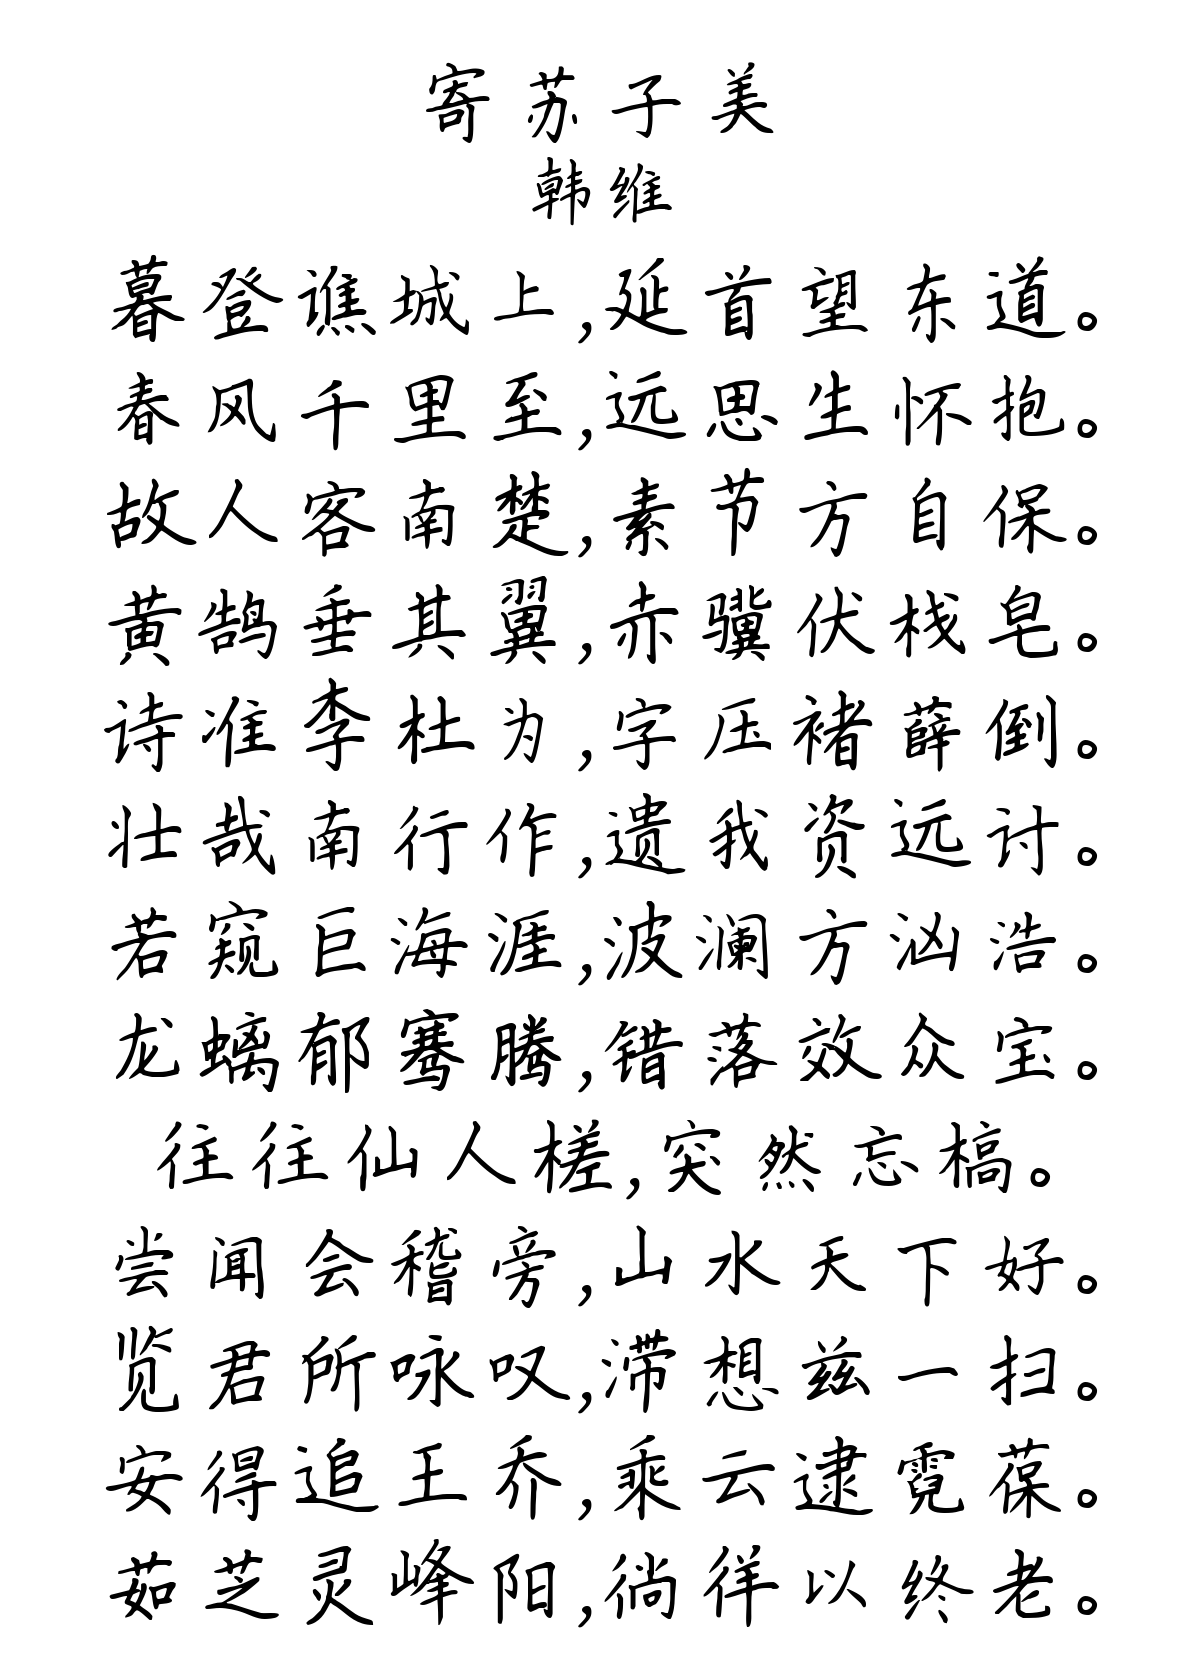 寄苏子美
韩维
暮登谯城上,延首望东道。
春风千里至,远思生怀抱。
故人客南楚,素节方自保。
黄鹄垂其翼,赤骥伏栈皂。
诗准李杜为,字压褚薛倒。
壮哉南行作,遗我资远讨。
若窥巨海涯,波澜方汹浩。
龙螭郁骞腾,错落效众宝。
往往仙人槎,突然忘槁。
尝闻会稽旁,山水天下好。
览君所咏叹,滞想兹一扫。
安得追王乔,乘云逮霓葆。
茹芝灵峰阳,徜徉以终老。